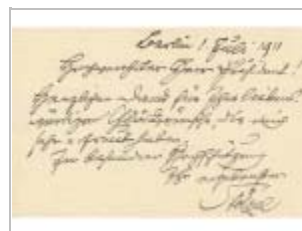 Berlin 1 Juli 1911
Hochverehrter Herr Präsident!
Herzlichen Dank für Ihre liebens-
würdigen Glückwünsche, die mich
sehr erfreut haben.
In besonderer Hochschätzung
Ihr ergebenster